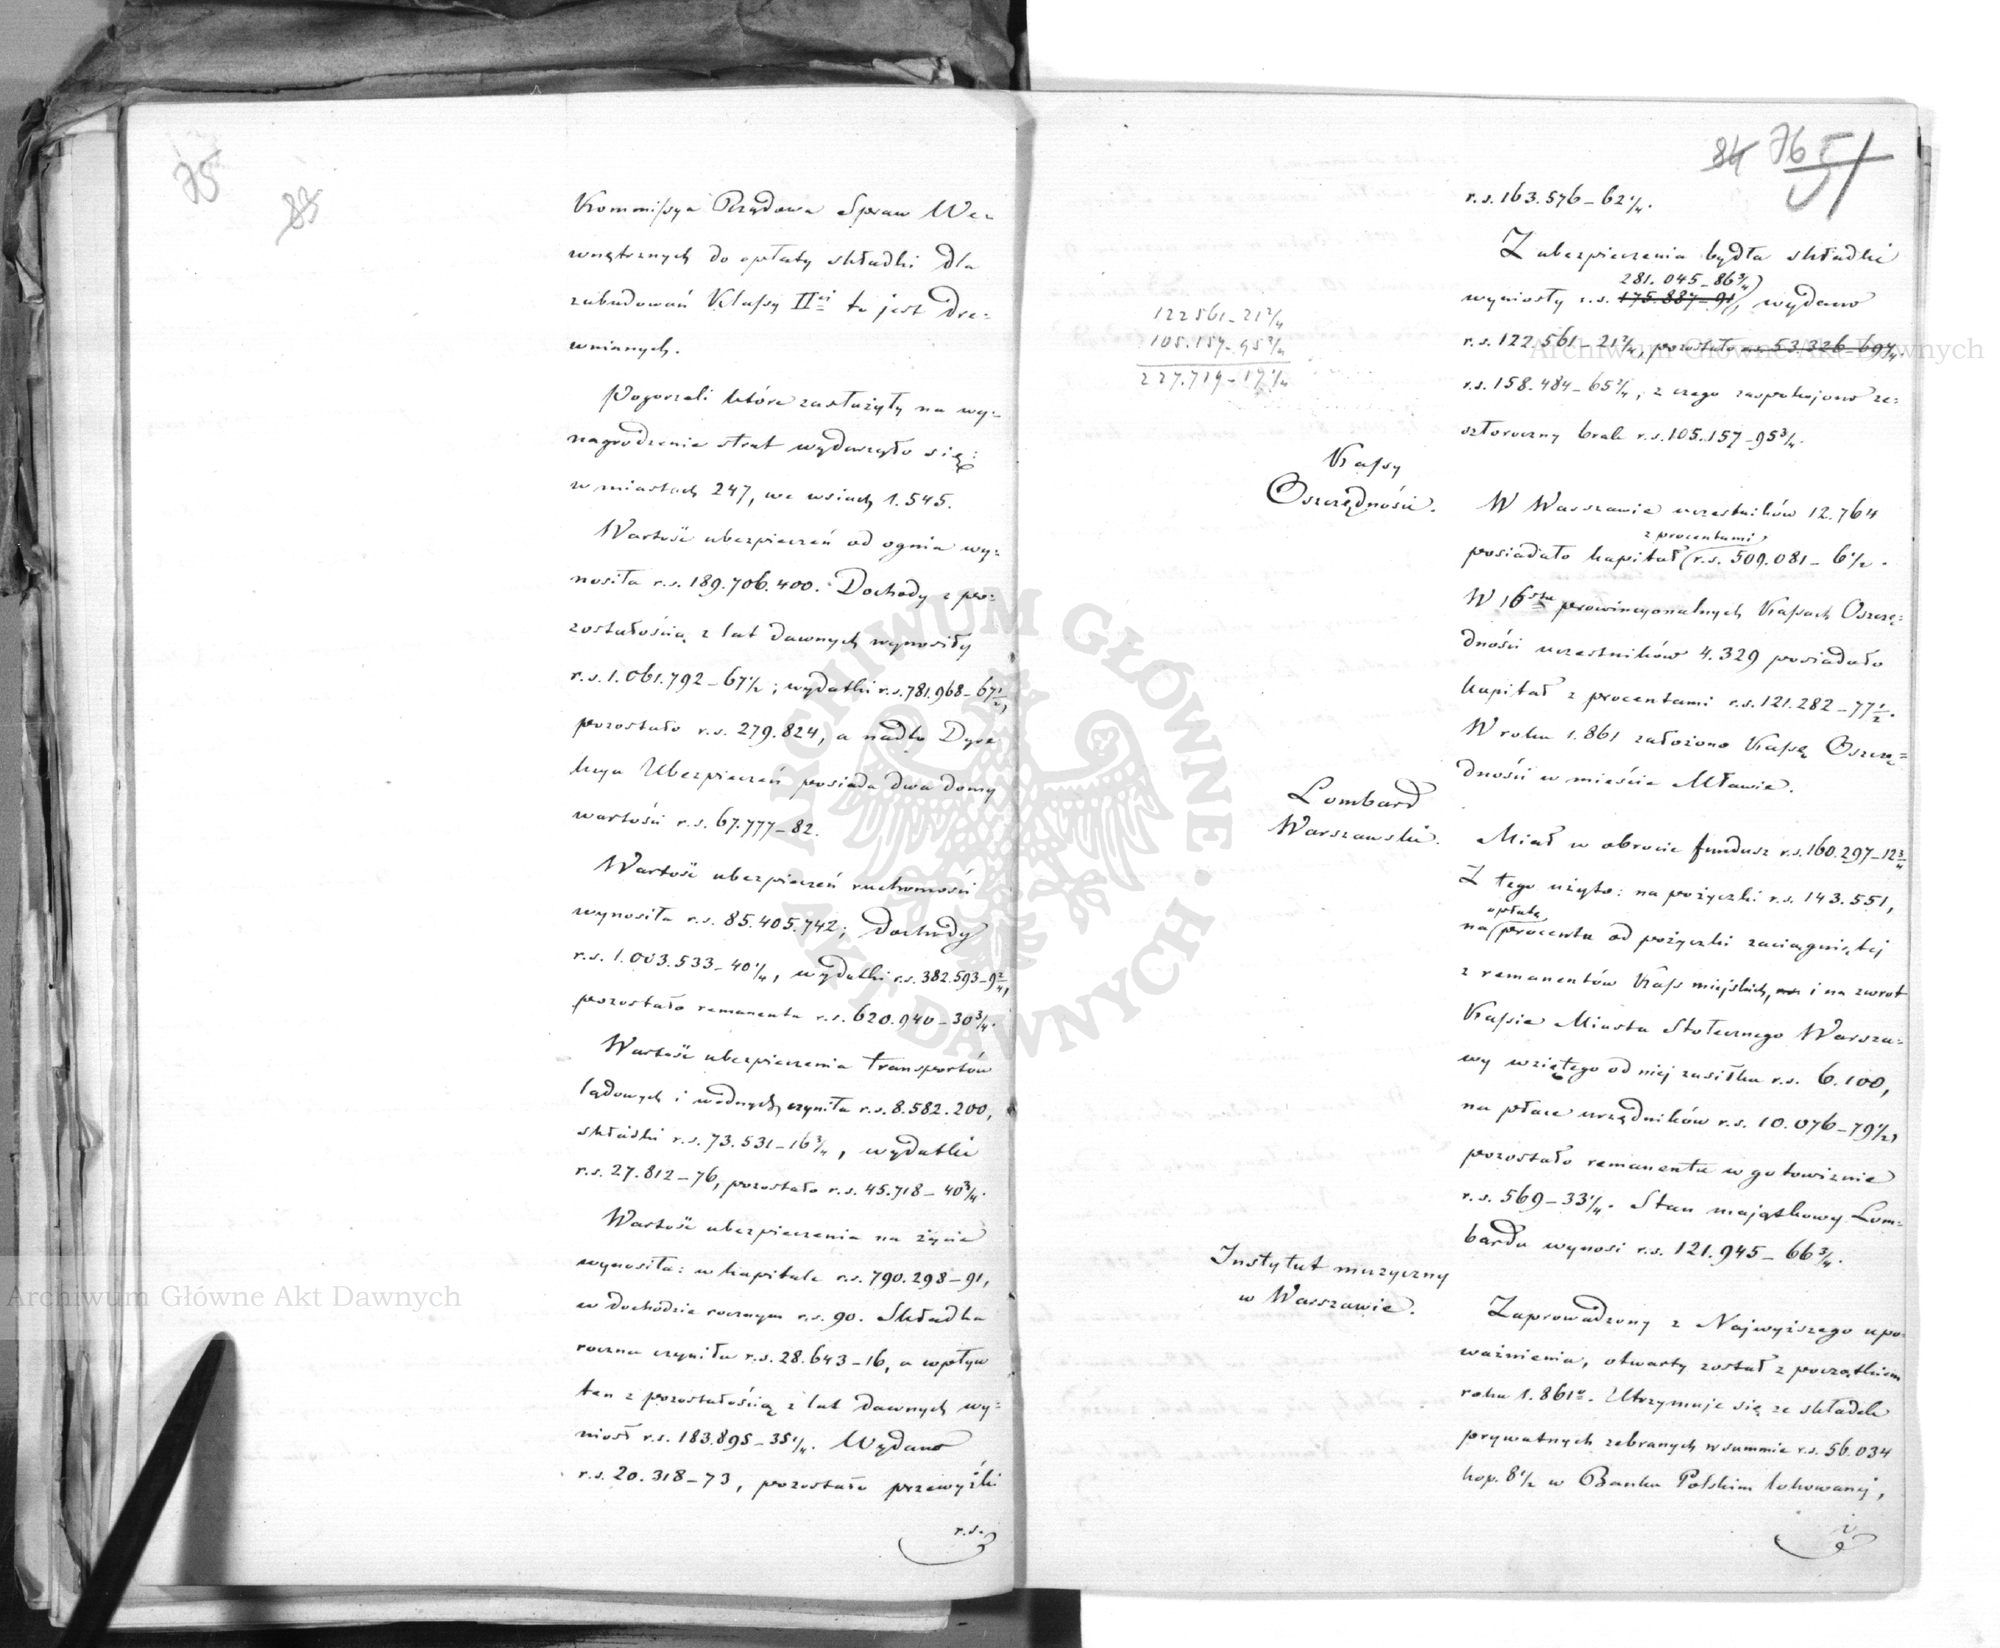 75
83
Kommissya Rządowa Spraw We-
wnętrznych do opłaty składki dla
zabudowań Klassy IIéj to jest dre-
wnianych.
Pogorzeli które zasłużyły na wy-
nagrodzenie strat wydarzyło się:
w miastach 247, we wsiach 1.545.
Wartość ubezpieczeń od ognia wy-
nosiła r.s. 189.706.400. Dochody z po-
zostałością z lat dawnych wynosiły
r.s. 1.061.792–67½; wydatki r.s. 781.968–67½,
pozostało r.s. 279.824, a nadto Dyre-
kcya Ubezpieczeń posiada dwa domy
wartości r.s. 67.777–82.
Wartość ubezpieczeń ruchomości
wynosiła r.s. 85.405.742; dochody
r.s. 1.003.533–40¼, wydatki r.s. 382.593–9 2/4,
pozostało remanentu r.s. 620.940–30¾.
Wartość ubezpieczenia transportów
lądowych i wodnych czyniła r.s. 8.582.200,
składki r.s. 73.531–16¾, wydatki
r.s. 27.812–76, pozostało r.s. 45.718–40¾.
Wartość ubezpieczenia na życie
wynosiła: w kapitale r.s. 790.298–91,
w dochodzie rocznym r.s. 90. Składka
roczna czyniła r.s. 28.643–16, a wpływ
ten z pozostałością z lat dawnych wy-
niosł r.s. 183.895–35¼. Wydano
r.s. 20.318–73, pozostało przewyżki
r.s.
84 76 51
r.s. 163.576–62¼.
Z ubezpieczenia bydła składki
281.045–86¾
wyniosły r.s. 175.887–91, wydano
r.s. 122.561–21 2/4, pozostało r.s. 53.326–69¾.
r.s. 158.484–65 2/4, z czego zaspokojono ze-
szłoroczny brak r.s. 105.157–95¾.
122561–21 2/4
105.157–95¾
227.719–17¼
Kassy
Oszczędności.
W Warszawie uczestników 12.764
z procentami
posiadało kapitał r.s. 509.081–6½.
W 16stu prowincyonalnych Kassach Oszczę-
dności uczestników 4.329 posiadało
kapitał z procentami r.s. 121.282–77½.
W roku 1.861 założono Kassę Oszczę-
dności w mieście Mławie.
Lombard
Warszawski.
Miał w obrocie fundusz r.s. 160.297–12¾
Z tego użyto: na pożyczki r.s. 143.551,
opłatę
na procentu od pożyczki zaciągniętej
z remanentów Kass miejskich, i na zwrot
Kassie Miasta Stołecznego Warsza-
wy wziętego od niej zasiłku r.s. 6.100,
na płace urzędników r.s. 10.076–79½,
pozostało remanentu w gotowiznie
r.s. 569–33¼. Stan majątkowy Lom-
bardu wynosi r.s. 121.945–66¾.
Instytut muzyczny
w Warszawie.
Zaprowadzony z Najwyższego upo-
ważnienia, otwarty został z początkiem
roku 1.861o. Utrzymuje się ze składek
prywatnych zebranych w summie r.s. 56.034
kop. 8½ w Banku Polskim lokowanéj,
i
ARCHIWUM GŁÓWNE AKT DAWNYCH
Archiwum Główne Akt Dawnych
Archiwum Główne Akt Dawnych